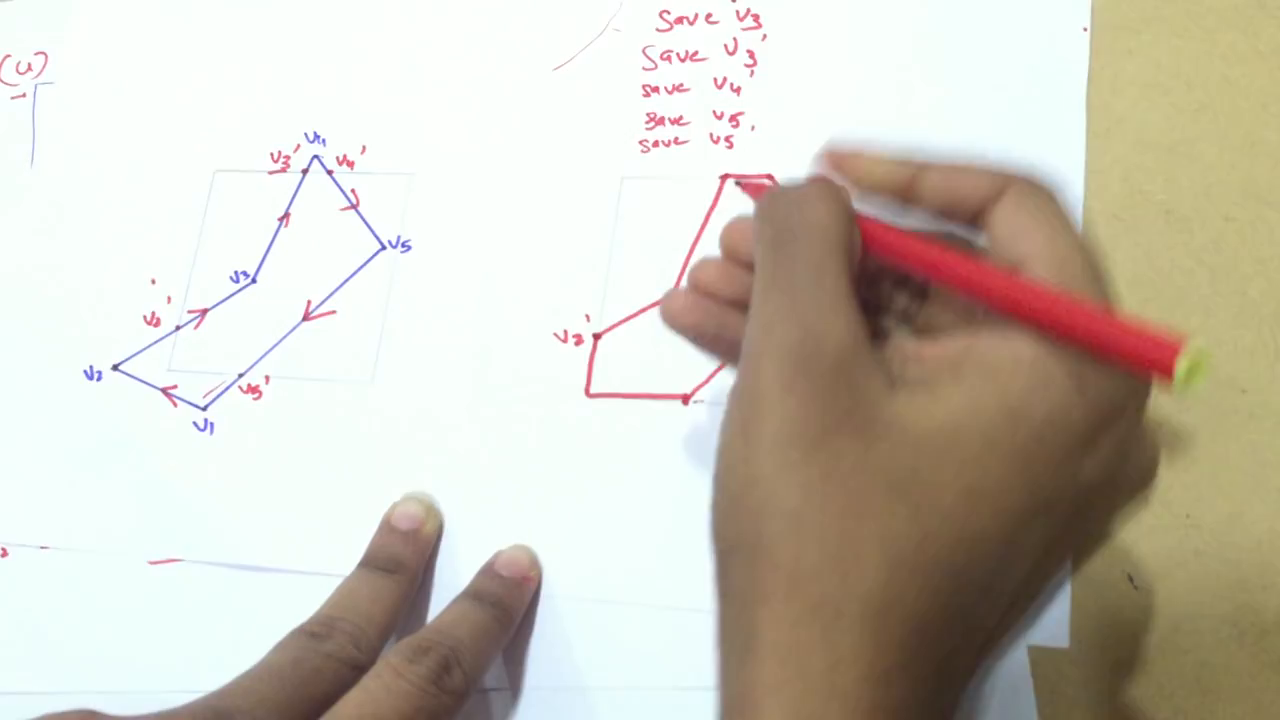 save v3
save v3'
save v4'
save v5,
save v5'
(4)
v4
v3' v4'
v5
v3
v2'
v2
v5'
v1
v2'